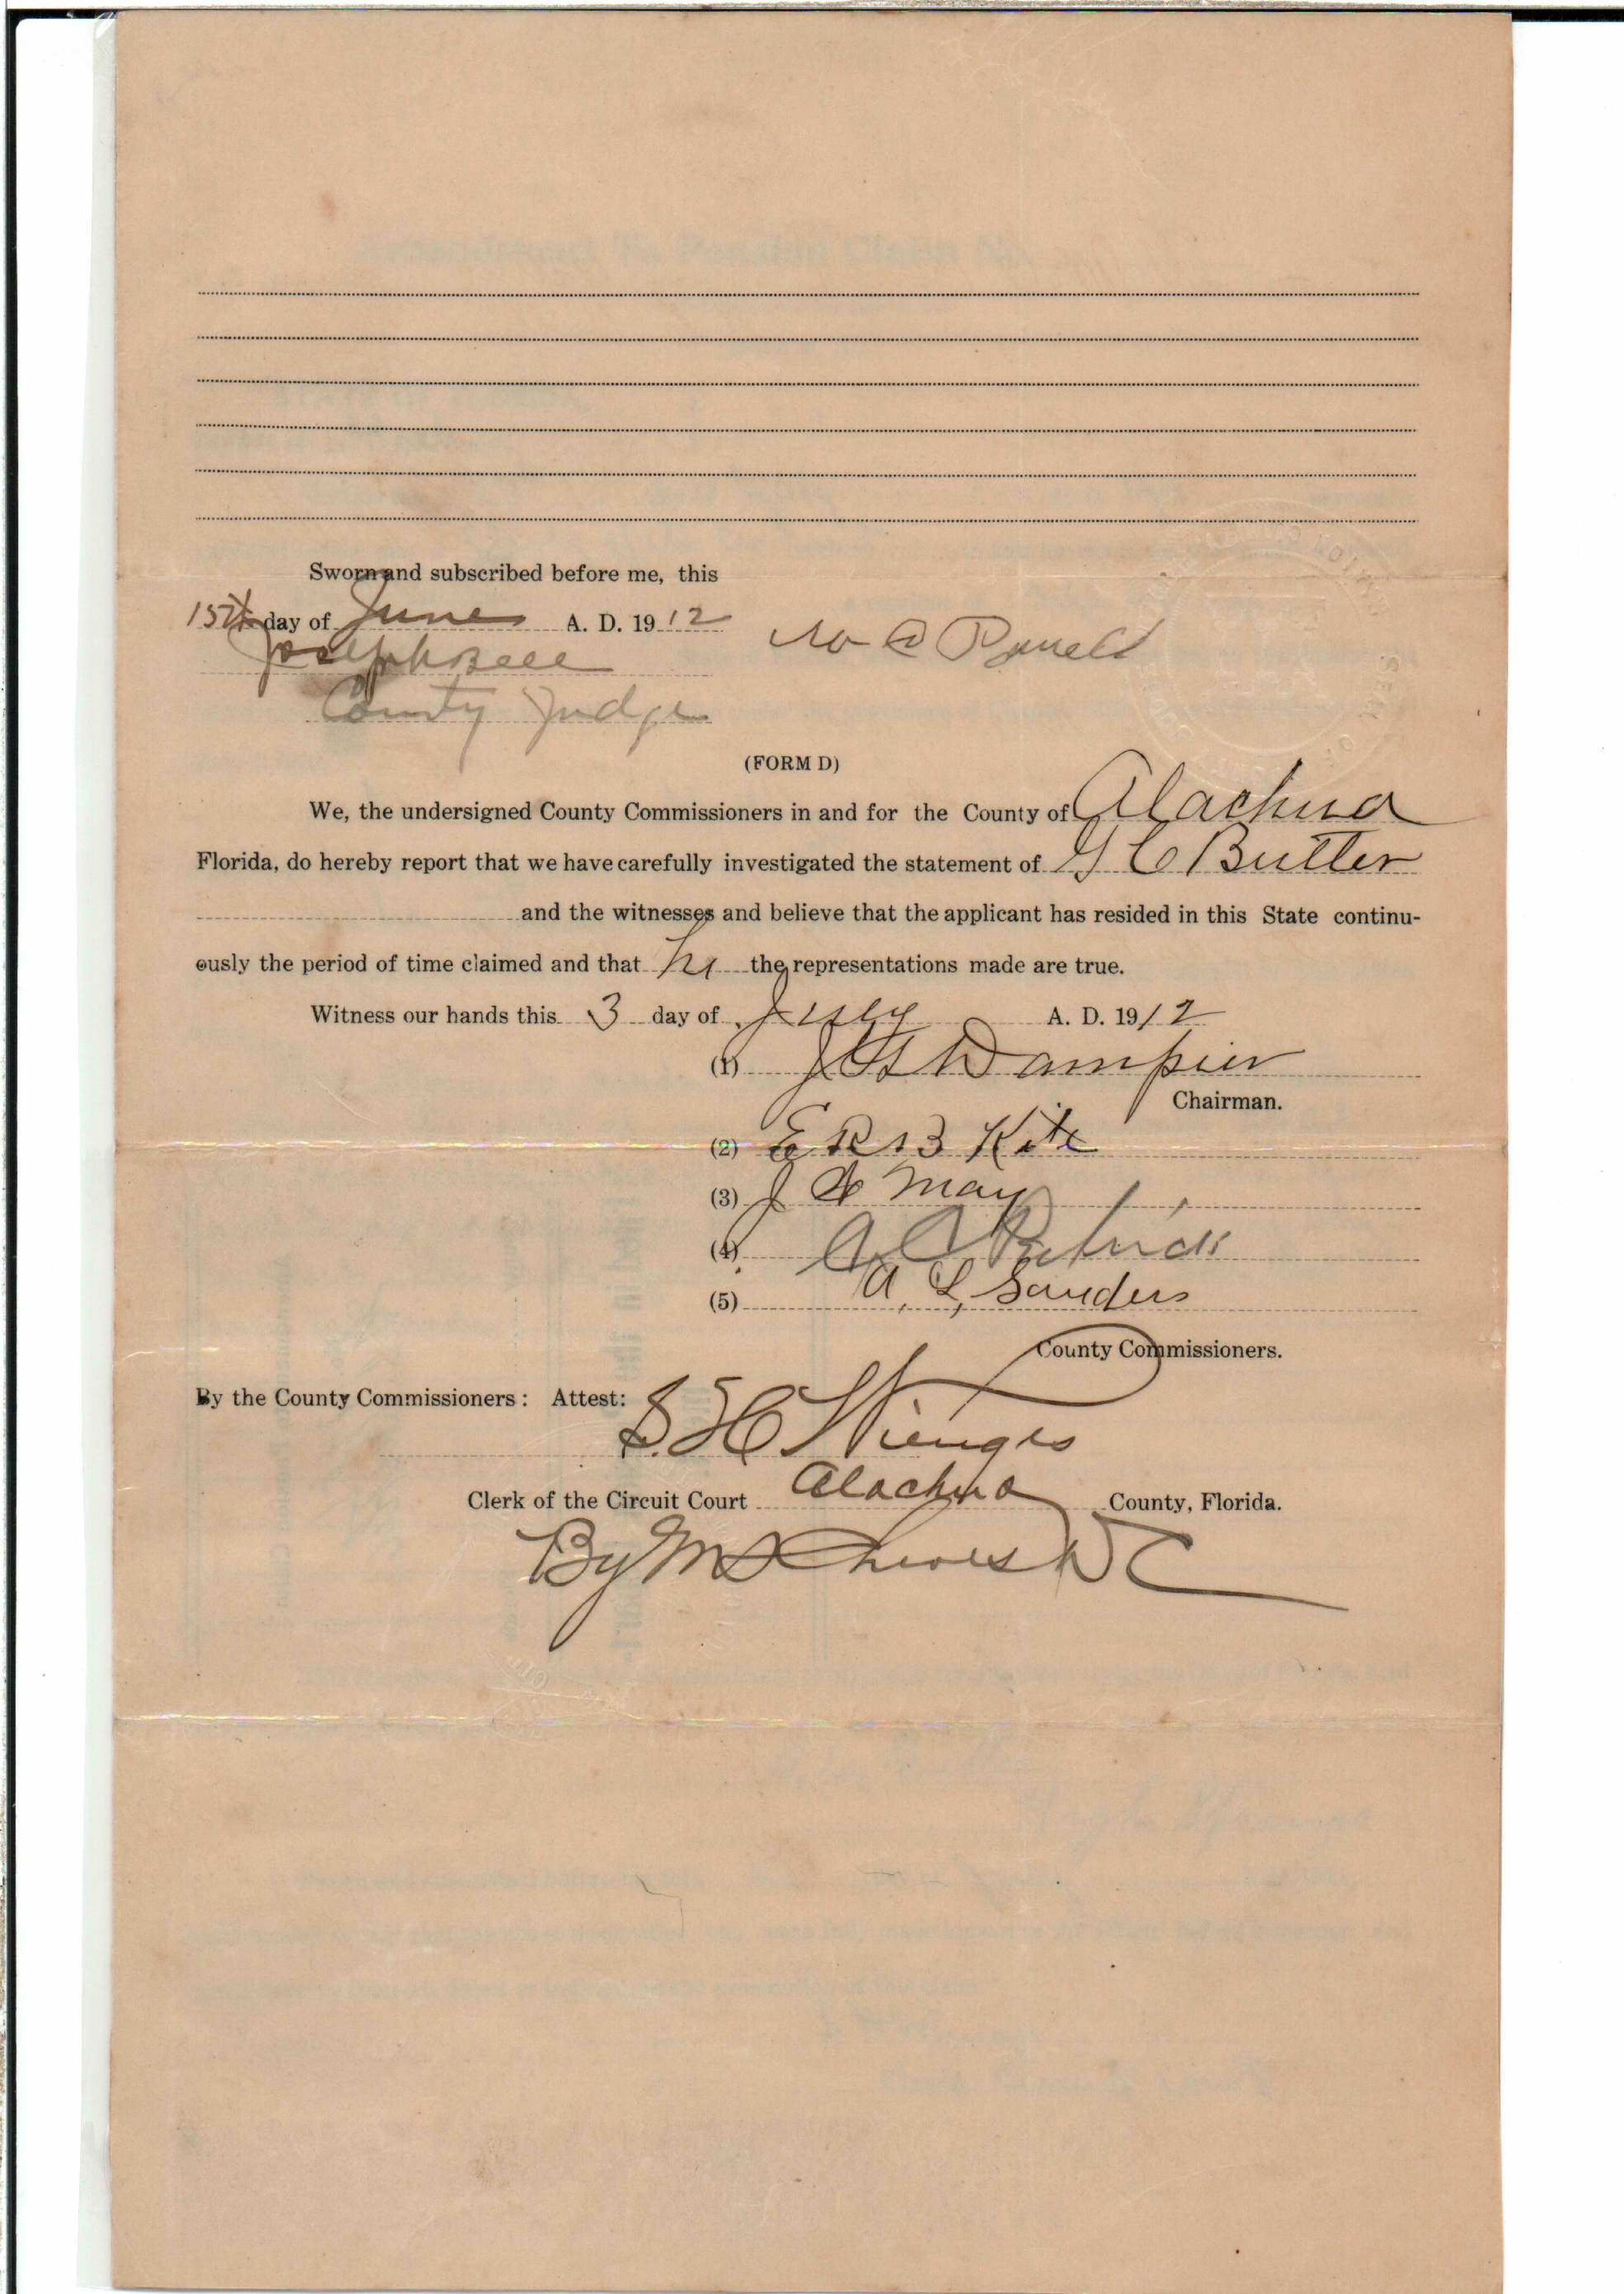 Sworn and subscribed before me, this
15th day of June A. D. 1912
Joseph Bell
County Judge
(FORM D)
We, the undersigned County Commissioners in and for the County of Alachua
Florida, do hereby report that we have carefully investigated the statement of G C Butler
and the witnesses and believe that the applicant has resided in this State continu-
ously the period of time claimed and that the representations made are true.
Witness our hands this 3 day of July A. D. 1912
(1) J G Dampier
Chairman.
(2) E R B Kite
(3) J H May
(4)
(5) A. L. Sanders
County Commissioners.
By the County Commissioners: Attest:
S. H. Wienges
Clerk of the Circuit Court Alachua County, Florida.
By M S Cheves D C